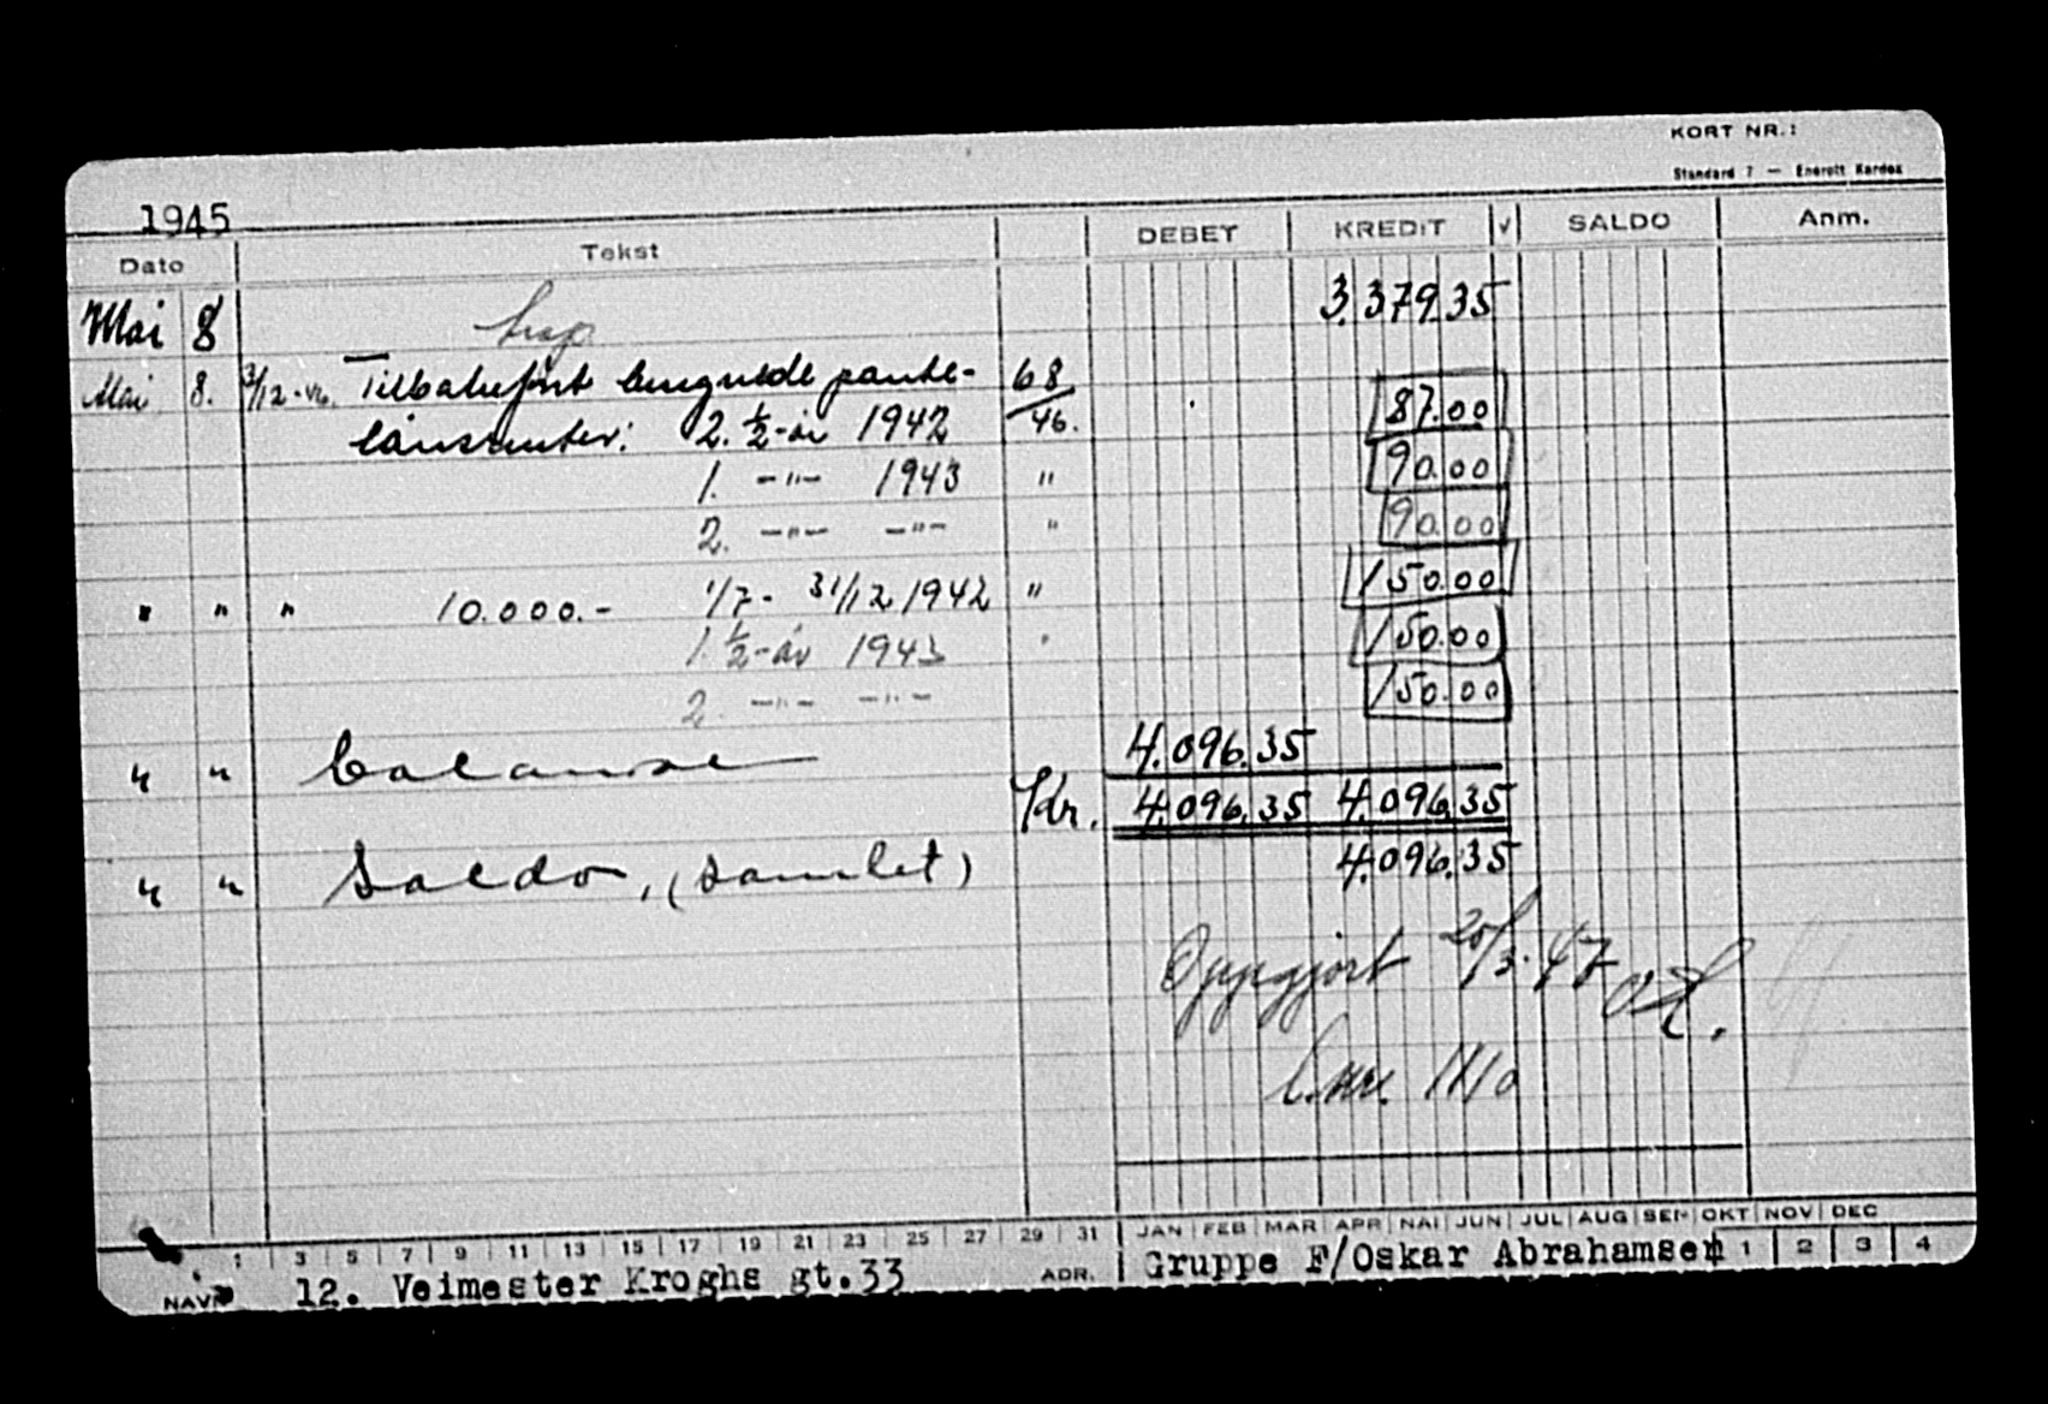 KORT NR.:
Standard 7 — Enerett Kardex
1945
Dato Tekst DEBET KREDIT √ SALDO Anm.
Mai 8 3.379.35
Mai 8. 3/12-46. Tilbakeført beregnede pante- 68/46.
lånsrenter: 2. ½-år 1942 87.00
1. -"- 1943 " 90.00
2. -"- -"- " 90.00
" " " 10.000.- 1/7 - 31/12 1942 " 150.00
1. ½-år 1943 " 150.00
2. -"- -"- 150.00
" " balanse 4.096.35
Kr. 4.096.35 4.096.35
" " Saldo, (samlet) 4.096.35
Oppgjort 20/3-47
L.nr.
1 3 5 7 9 11 13 15 17 19 21 23 25 27 29 31 JAN FEB MAR APR MAI JUN JUL AUG SEP OKT NOV DEC
NAVN 12. Veimester Kroghs gt.33 ADR. Gruppe F/Oskar Abrahamsen 1 2 3 4